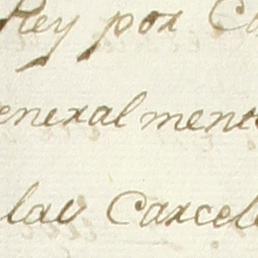 Rey por Ca
eneral mente
las Carcele